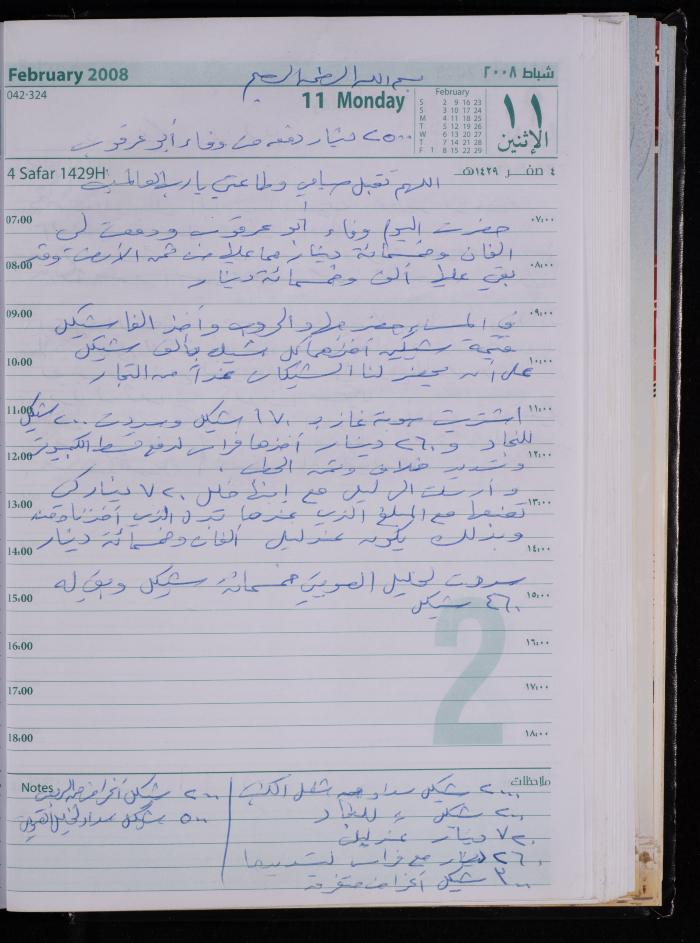 February 2008
بسم الله الرحمن الرحيم
شباط ٢٠٠٨
042-324
11 Monday
February
S 2 9 16 23
S 3 10 17 24
M 4 11 18 25
T 5 12 19 26
W 6 13 20 27
T 7 14 21 28
F 1 8 15 22 29
١١
الإثنين
٢٥٠٠ دينار دفعه من وفاء أبو عرقوب
4 Safar 1429H
٤ صفر ١٤٢٩هـ
اللهم تقبل صيامي وطاعتي يا رب العالمين
07:00
٠٧:٠٠
حضرت اليوم وفاء أبو عرقوب ودفعت لي
الفان وخمسمائة دينار مما علي من ثمن الأرض وقد
08:00
٠٨:٠٠
بقي علي ألف وخمسمائة دينار
09:00
٠٩:٠٠
في المساء حضر والحروب وأخذ الفا شيكل
قيمة شيكين أخذهما كل شيك بألف شيكل
10:00
١٠:٠٠
على أن يحضر لنا الشيكات غداً من التجار
11:00
١١:٠٠
اشتريت صوبة غاز بـ ١٧٠ شيكل وسددت ٢٠٠ شيكل
للنجاد و ٢٦٠ دينار أخذها فراس لدفع قسط الكمبيوتر
12:00
١٢:٠٠
وتسديد وثمن الحطب .
وأرسلت الى ليلى مع ٧٢٠ دينار كي
13:00
١٣:٠٠
تضعها مع المبلغ الذي عندها بدل الذي أخذناه منه
وبذلك يكون عند ليلى الفان وخمسمائة دينار
14:00
١٤:٠٠
سددت لخليل خمسمائة شيكل وبقي له
15:00
١٥:٠٠
٤٦٠ شيكل
16:00
١٦:٠٠
17:00
١٧:٠٠
18:00
١٨:٠٠
2
Notes
ملاحظات
٢٠٠٠ شيكل سداد
٢٠٠ شيكل للنجاد
٧٢٠ دينار عند ليلى
٢٦٠ دينار مع فراس لتسديدها
٣٠٠ شيكل أغراض متفرقة
٢٠٠ شيكل أغراض
٥٠٠ شيكل سداد لخليل